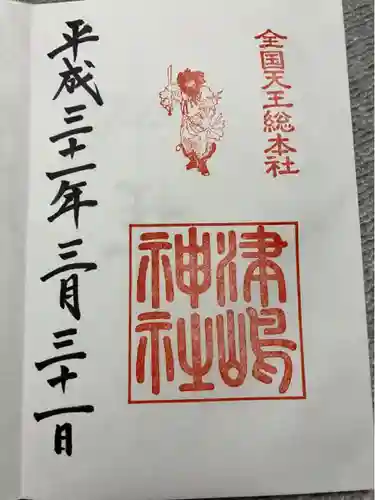 全国天王総本社
津嶋
神社
平成三十一年三月三十一日